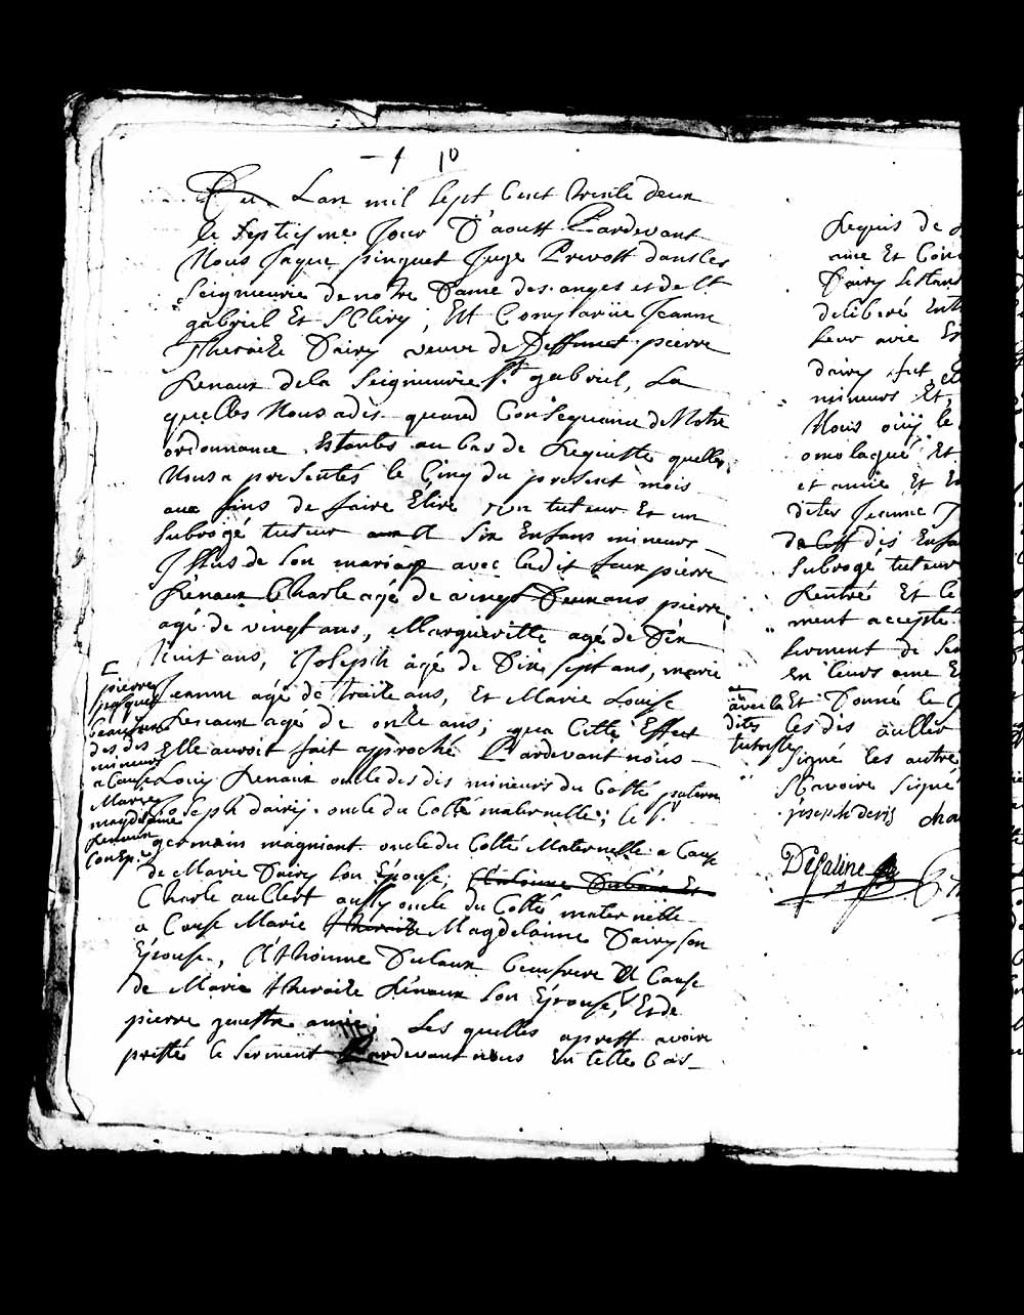 En Lan mil Sept Cent trente deux
le Septiesme Jour D'aoust Pardevant
Nous Jaque pinguet Juge Prevost dans les
Seigneurie de notre Dame des anges et de St
gabriel Et Sillery; Est Comparüe Jeanne
Theraile Dairy veuve de Deffunct pierre
Renaux dela Seigneurie St gabriel, La
quelles Nous a dis quand Consequance de Notre
ordonnance Estantes au bas de Requiste quelles
Nous a presentés le Cinq du present mois
aux fins de faire Elire un tuteur Et un
Subrogé tuteur a Six Enfans mineurs
Issus de Son mariage avec ledit feux pierre
Renaux Charle agé de vingt Deux ans pierre
agé de vingt ans, Margueritte agé de Dix
huit ans, Joseph agé de Dix sept ans, marie
Jeanne agé de traile ans, Et Marie Louise
Renaux agé de onle ans; qua Cette Effect
Elle auroit fait approché Pardevant nous
Louis Renaux oncle des dis mineurs du Costé patern
Joseph dairy oncle du Costé maternelle; le Sr
germain magniant oncle du Costé Maternelle a Cause
de Marie Dairy Son Épouse;
Charle aullert aussy oncle du Costé maternelle
a Cause Marie Magdelainne Dairy son
Épouse, Athoinne Dulaux beaufrere A Cause
de Marie theraile Rénaux Son Épouse, Et de
pierre genestre amie; Les quelles apres avoir
prestés le Serment Pardevant nous En telle Cas
pierre
jasque
beaufrere
des dis
mineurs
a Cause
Marie
magdelainne
Renaux
Son Ep
Requis de
amie Et
Dairy
deliberé Ent
Leur avie
dairy fut
mineurs Et
Nous ouïj le
omolagué Et
et amie Et
dites Jeanne
des Enfa
Subrogé tuteur
Rentré Et le
ment accepté
Serment de
En leurs ame
Et Donné le
les dis aullert
Signé les autre
Scavoire Signé
joseph deris cha
avec la
dites
tutrisse
Desaline